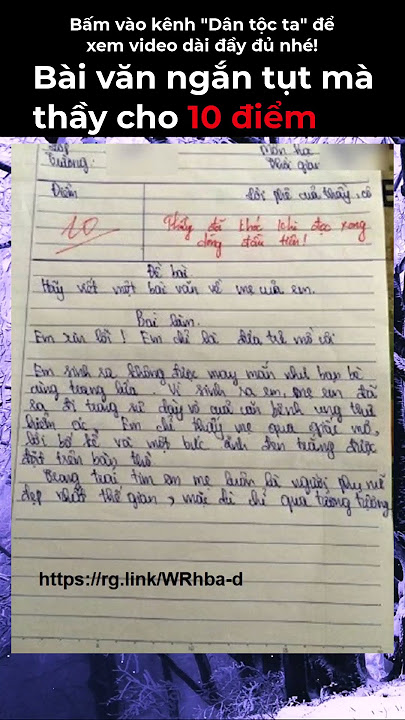 Bấm vào kênh "Dân tộc ta" để
xem video dài đầy đủ nhé!
Bài văn ngắn tụt mà
thầy cho 10 điểm
Trường:
Thời gian
Điểm
Lời phê của thầy, cô
10
Thầy đã khóc khi đọc xong
dòng đầu tiên!
Đề bài
Hãy viết một bài văn về mẹ của em.
Bài làm.
Em xin lỗi! Em chỉ là đứa trẻ mồ côi
Em sinh ra không được may mắn như bạn bè
cùng trang lứa Vì sinh ra em, mẹ em đã
ra đi trong sự dày vò của căn bệnh ung thư
hiểm ác. Em chỉ thấy mẹ qua giấc mơ,
lời bố kể và một bức ảnh đen trắng được
đặt trên bàn thờ
Trong trái tim em mẹ luôn là người phụ nữ
đẹp nhất thế gian, mặc dù chỉ qua tưởng tượng
https://rg.link/WRhba-d